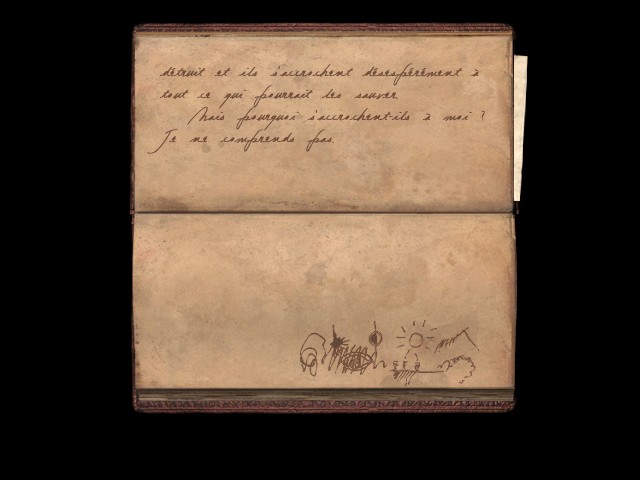 détruit et ils s'accrochent désespérément à
tout ce qui pourrait les sauver.
Mais pourquoi s'accrochent-ils à moi ?
Je ne comprends pas.